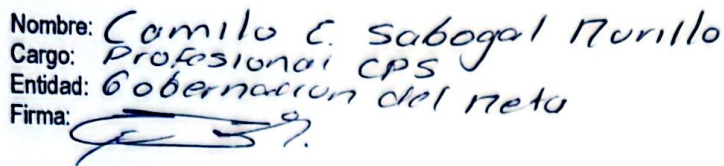 Nombre: Camilo E. Sabogal Murillo
Cargo: Profesional CPS
Entidad: Gobernacion del Meta
Firma: